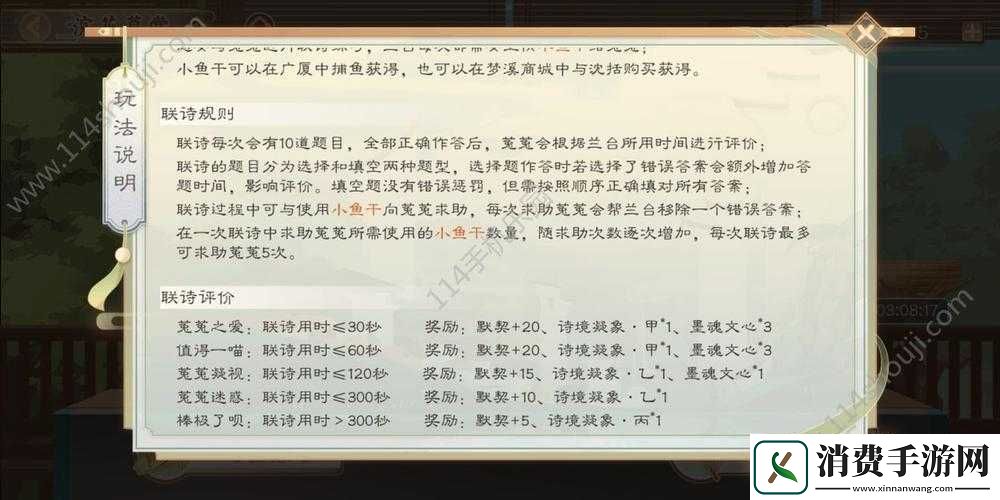 玩法说明
小鱼干可以在广厦中捕鱼获得，也可以在梦溪商城中与沈括购买获得。
联诗规则
联诗每次会有10道题目，全部正确作答后，菟菟会根据兰台所用时间进行评价；
联诗的题目分为选择和填空两种题型，选择题作答时若选择了错误答案会额外增加答
题时间，影响评价。填空题没有错误惩罚，但需按照顺序正确填对所有答案；
联诗过程中可与使用小鱼干向菟菟求助，每次求助菟菟会帮兰台移除一个错误答案；
在一次联诗中求助菟菟所需使用的小鱼干数量，随求助次数逐次增加，每次联诗最多
可求助菟菟5次。
联诗评价
菟菟之爱：联诗用时≤30秒 奖励：默契+20、诗境凝象·甲*1、墨魂文心*3
值得一喵：联诗用时≤60秒 奖励：默契+20、诗境凝象·甲*1、墨魂文心*3
菟菟凝视：联诗用时≤120秒 奖励：默契+15、诗境凝象·乙*1、墨魂文心*1
菟菟迷惑：联诗用时≤300秒 奖励：默契+10、诗境凝象·乙*1
棒极了呗：联诗用时＞300秒 奖励：默契+5、诗境凝象·丙*1
03:08:17
www.114shouji.com
114手机乐园
114shouji.com
消费手游网
www.xinnanwang.com